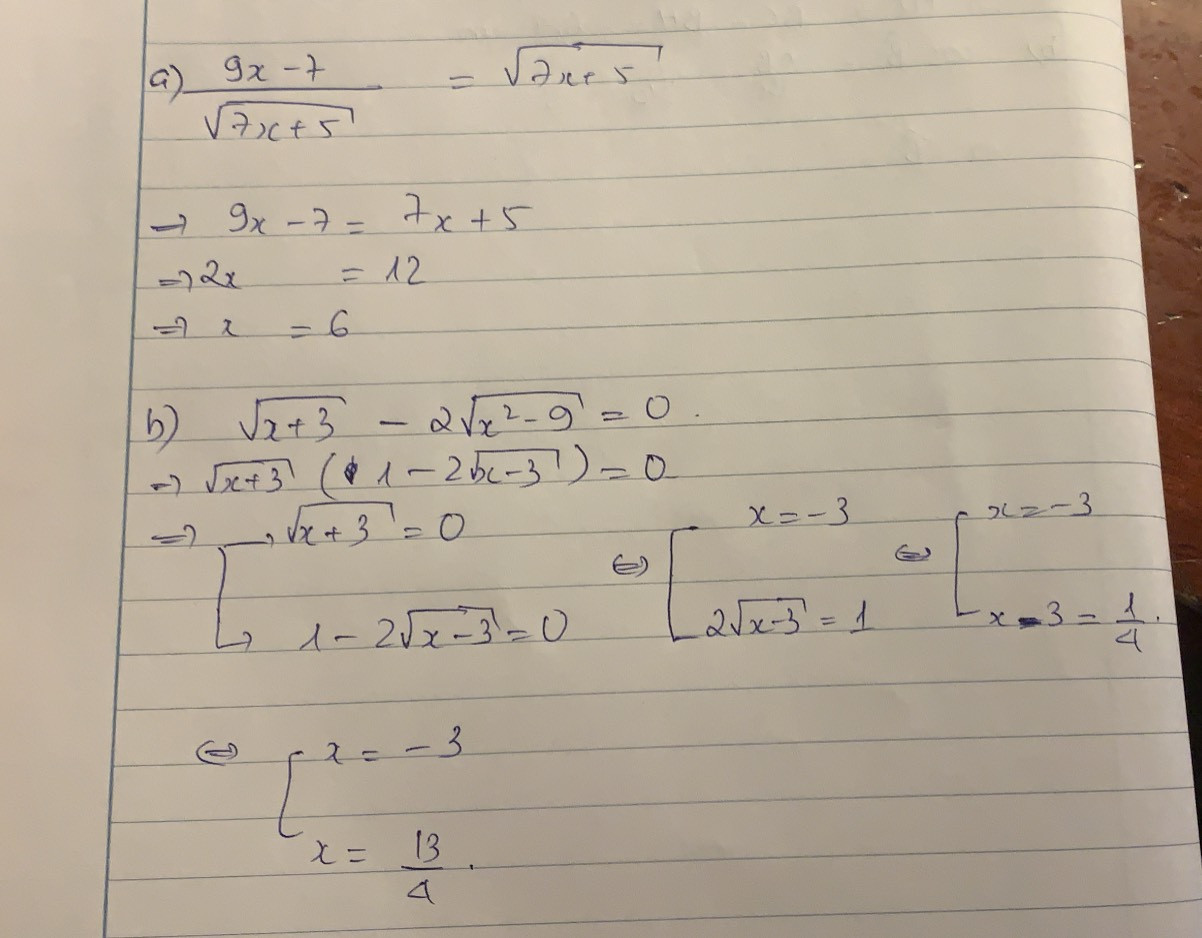 a) (9x - 7)/√(7x+5) = √(7x+5)
→ 9x - 7 = 7x + 5
⇒ 2x = 12
⇒ x = 6
b) √(x+3) - 2√(x²-9) = 0.
⇒ √(x+3) (1 - 2√(x-3)) = 0
⇒ [ √(x+3) = 0 ⇔ [ x = -3 ⇔ [ x = -3
1 - 2√(x-3) = 0 2√(x-3) = 1 x - 3 = 1/4.
⇔ [ x = -3
x = 13/4.